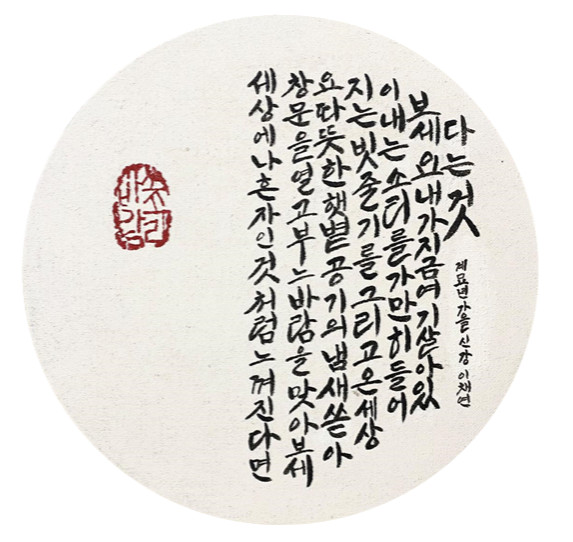 바람
소리
세상에나혼자인것처럼느껴진다면
창문을열고부느바람을맞아보세
요따뜻한햇볕공기의냄새쏟아
지는빗줄기를그리고온세상
이내는소리를가만히들어
보세요내가지금여기살아있
다는것
계묘년 가을 신강 이채연